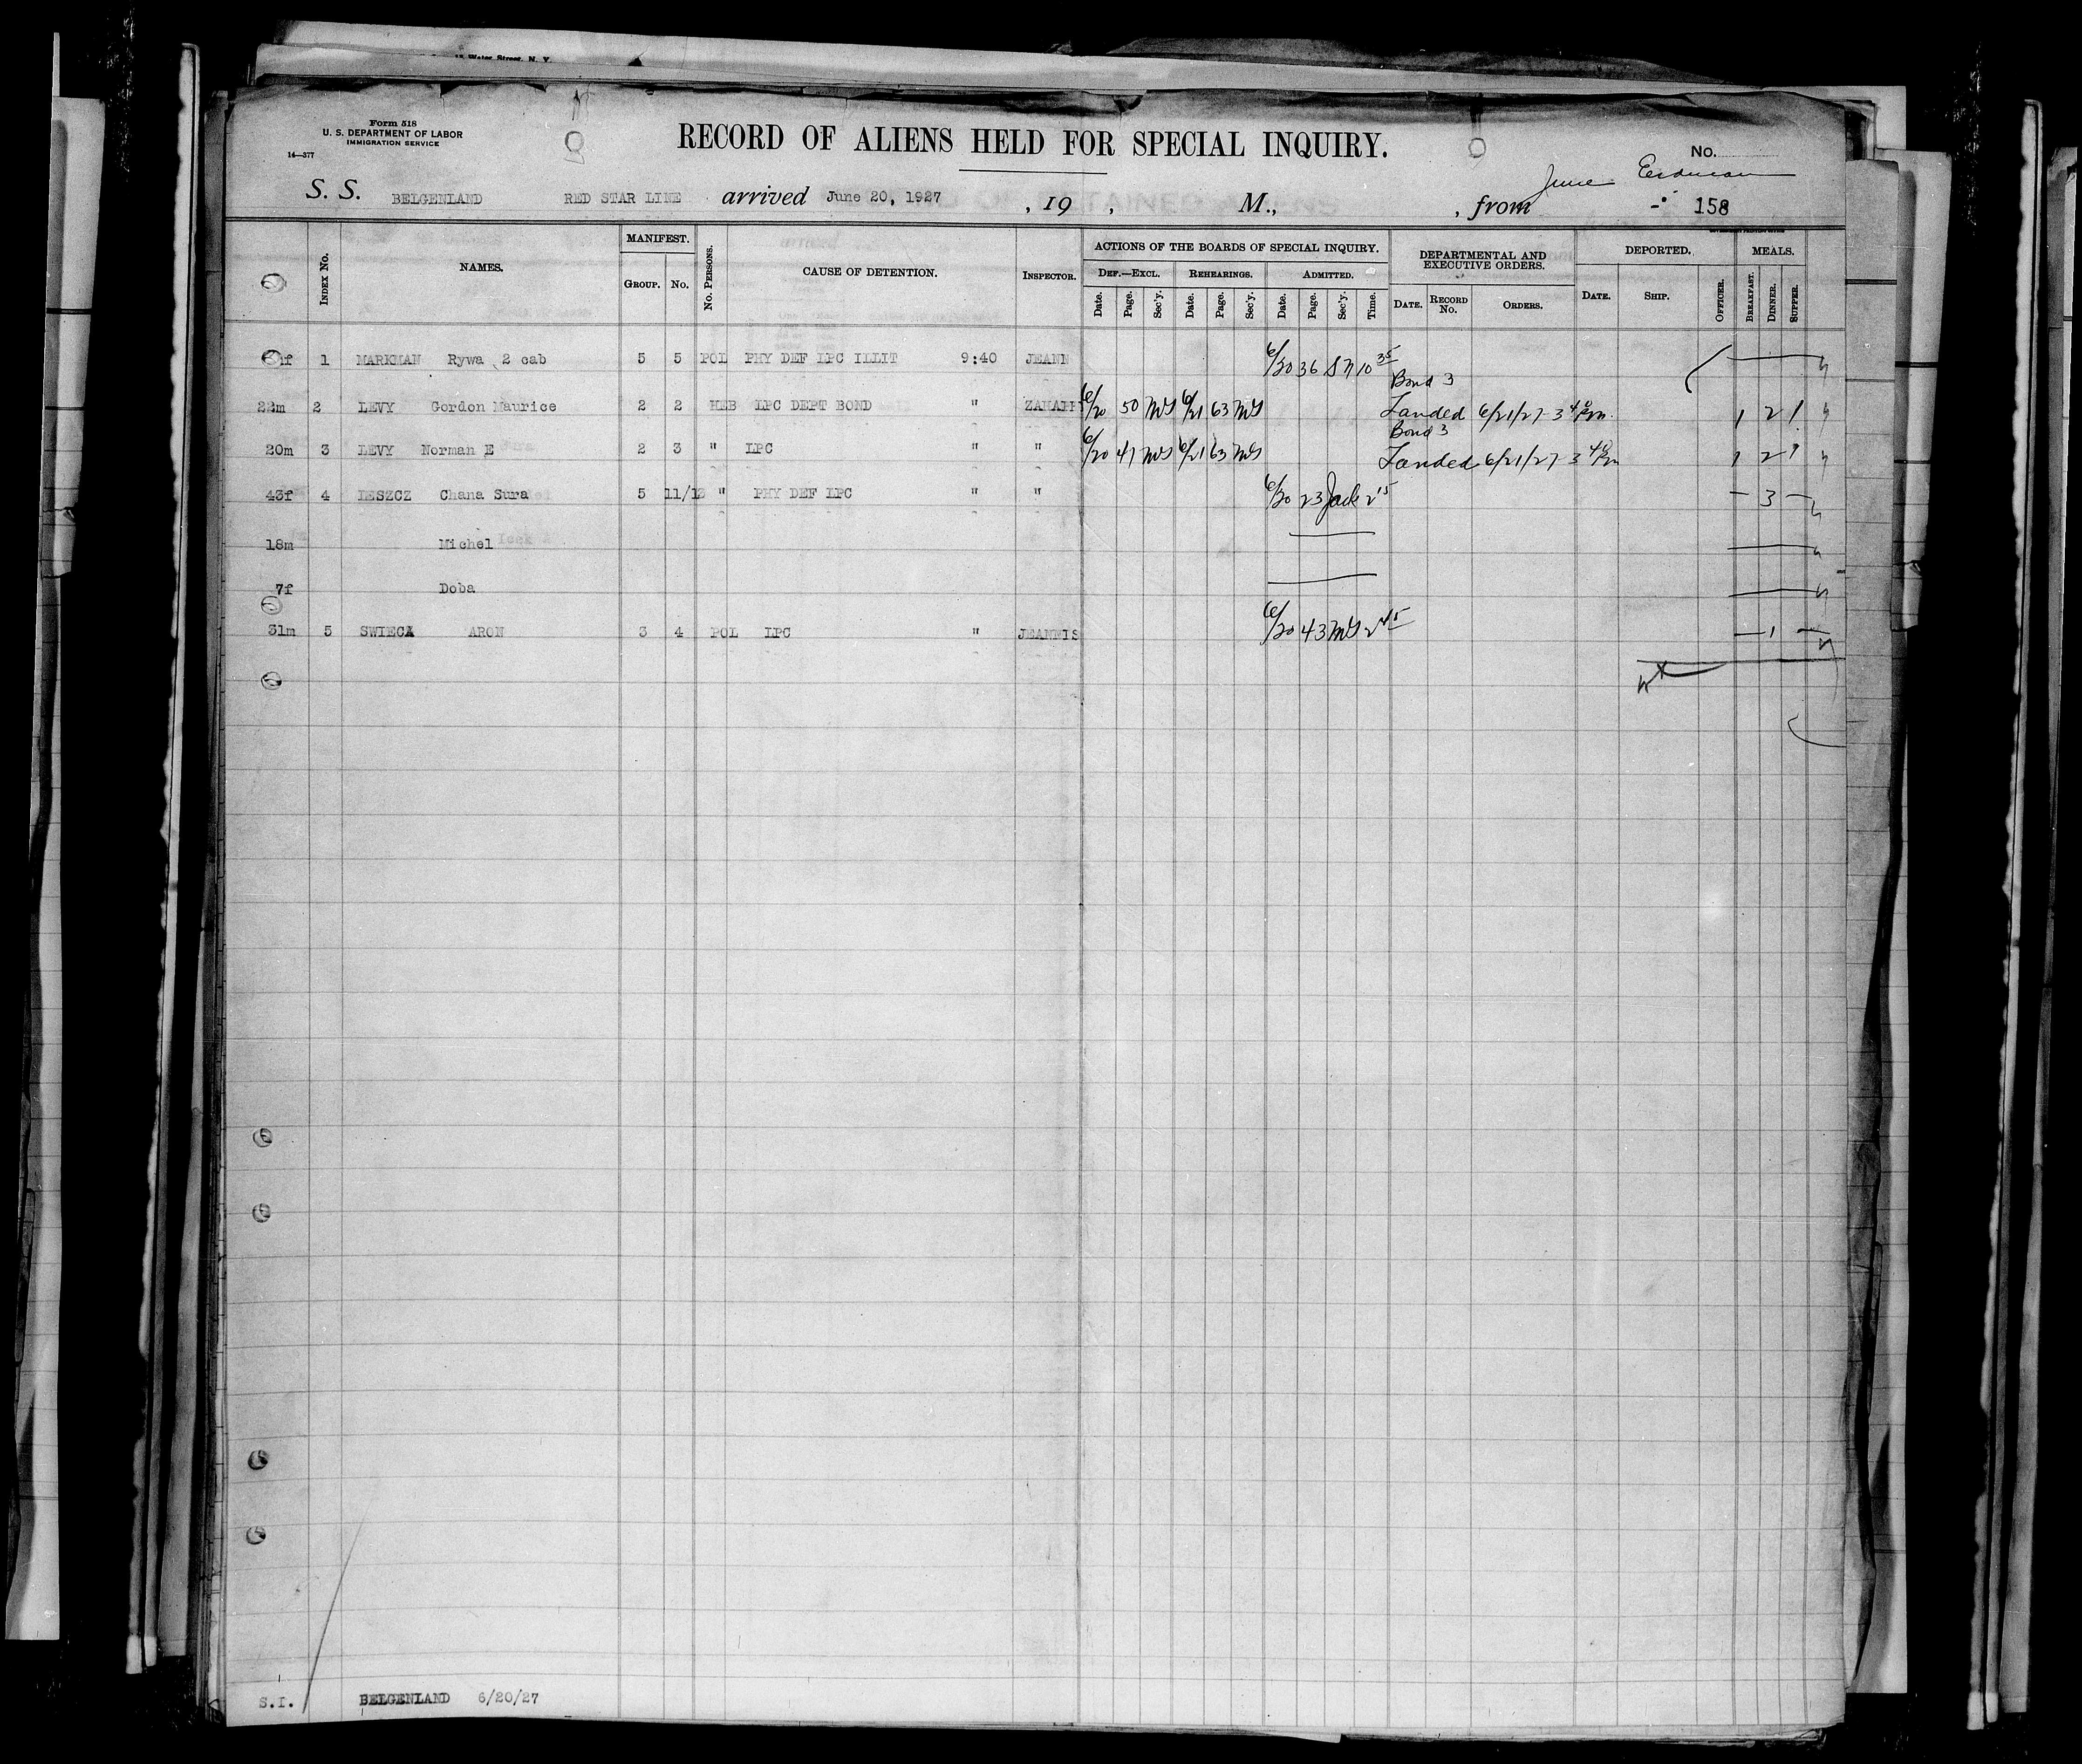 15 Water Street, N. Y.
Form 518
U. S. DEPARTMENT OF LABOR
IMMIGRATION SERVICE
14—377
RECORD OF ALIENS HELD FOR SPECIAL INQUIRY.
No.
June
S. S. BELGENLAND RED STAR LINE arrived June 20, 1927 , 19 , M., , from 158
INDEX No. NAMES. MANIFEST. GROUP. No. No. PERSONS. CAUSE OF DETENTION. INSPECTOR. ACTIONS OF THE BOARDS OF SPECIAL INQUIRY. DEPARTMENTAL AND EXECUTIVE ORDERS. DEPORTED. MEALS.
DEF.—EXCL. REHEARINGS. ADMITTED.
Date. Page. Sec'y. Date. Page. Sec'y. Date. Page. Sec'y. Time. DATE. RECORD No. ORDERS. DATE. SHIP. OFFICER. BREAKFAST. DINNER. SUPPER.
1 MARKMAN Rywa 2 cab 5 5 POL PHY DEF LPC ILLIT 9:40 JEANN 6/20 36 10 35
Bond 3
22m 2 LEVY Gordon Maurice 2 2 HEB LPC DEPT BOND " 6/20 50 MS 6/21 63 MS Landed 6/21/27 3 40 Pm. 1 2 1
Bond 3
20m 3 LEVY Norman E 2 3 " LPC " " 6/20 47 MS 6/21 63 MS Landed 6/21/27 3 40 Pm 1 2 1
43f 4 LESZCZ Chana Sura 5 11/13 " PHY DEF LPC " " 6/20 23 Jack 2 15 — 3 —
18m Michel
7f Doba
31m 5 SWIECA ARON 3 4 POL LPC " JEANNIS 6/20 43 MS 2 45 — 1 —
S.I. BELGENLAND 6/20/27